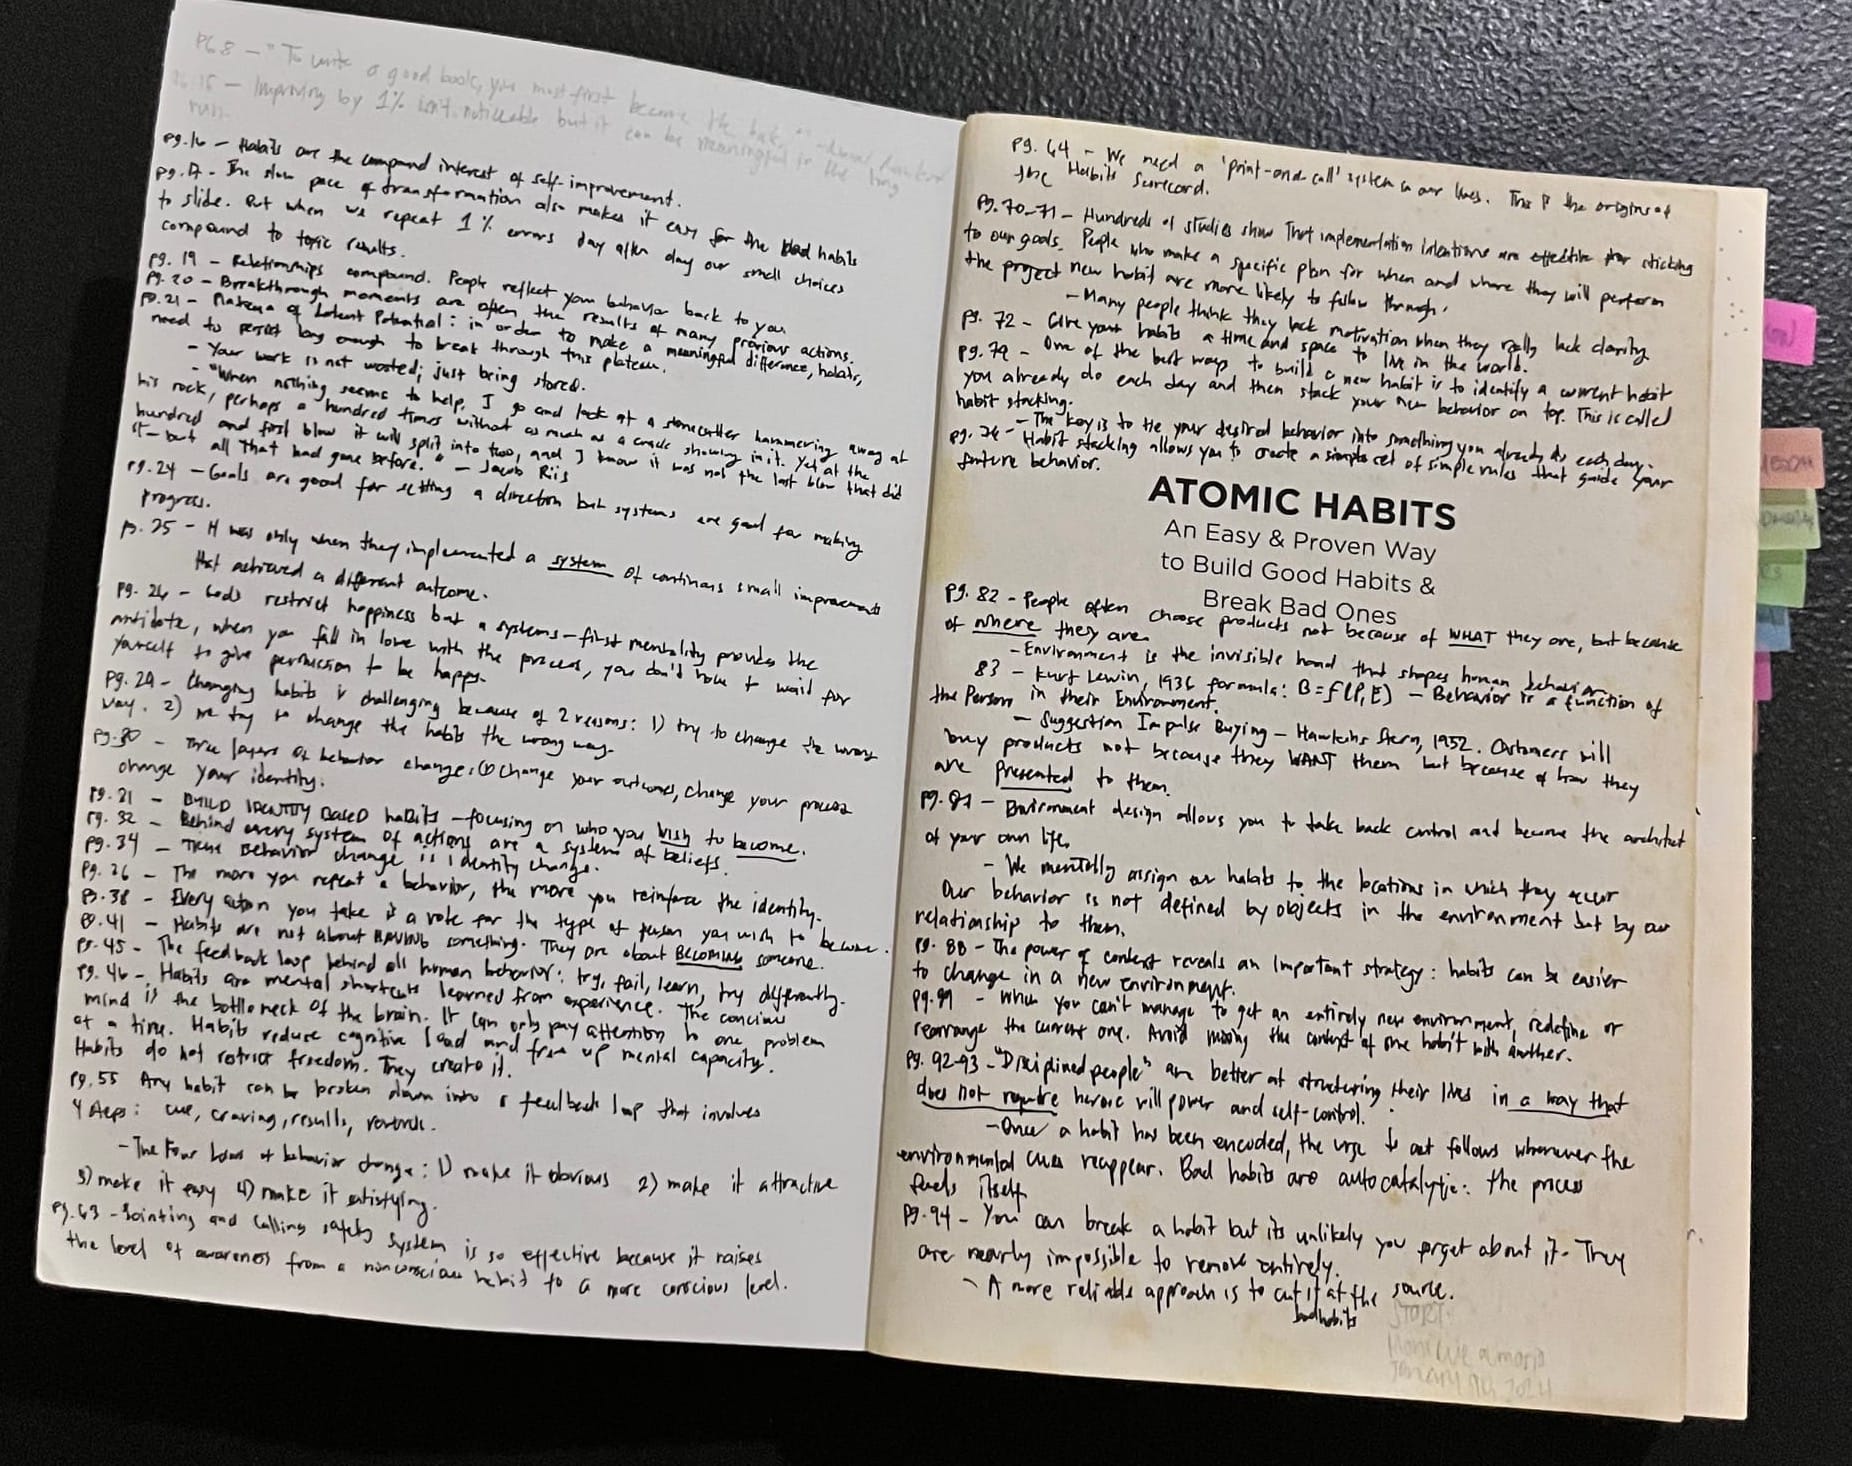 PG 8 - "To write a good book, you must first become the book."
Improving by 1% isn't noticeable but it can be meaningful in the long
run.
pg. 16 - Habits are the compound interest of self-improvement.
pg. 17 - The slow pace of transformation also makes it easy for the bad habits
to slide. But when we repeat 1% errors day after day our small choices
compound to toxic results.
pg. 19 - Relationships compound. People reflect your behavior back to you
pg. 20 - Breakthrough moments are often the results of many previous actions.
pg. 21 - Plateau of Latent Potential: in order to make a meaningful difference, habits,
need to persist long enough to break through this plateau.
- Your work is not wasted; just being stored.
- "When nothing seems to help, I go and look at a stonecutter hammering away at
his rock, perhaps a hundred times without as much as a crack showing in it. Yet at the
hundred and first blow it will split into two, and I know it was not the last blow that did
it - but all that had gone before." - Jacob Riis
pg. 24 - Goals are good for setting a direction but systems are good for making
progress.
pg. 25 - It was only when they implemented a system of continuous small improvements
that achieved a different outcome.
pg. 26 - Goals restrict happiness but a systems-first mentality provides the
antidote, when you fall in love with the process, you don't have to wait for
yourself to give permission to be happy.
pg. 29 - Changing habits is challenging because of 2 reasons: 1) try to change the wrong
way. 2) we try to change the habits the wrong way.
pg. 30 - Three layers of behavior change: change your outcomes, change your process
change your identity.
pg. 31 - BUILD IDENTITY BASED habits - focusing on who you wish to become.
pg. 32 - Behind every system of actions are a system of beliefs.
pg. 34 - True Behavior change is identity change.
pg. 36 - The more you repeat a behavior, the more you reinforce the identity.
pg. 38 - Every action you take is a vote for the type of person you wish to become.
pg. 41 - Habits are not about HAVING something. They are about BECOMING someone.
pg. 45 - The feedback loop behind all human behavior: try, fail, learn, try differently.
pg. 46 - Habits are mental shortcuts learned from experience. The concious
mind is the bottleneck of the brain. It can only pay attention to one problem
at a time. Habits reduce cognitive load and free up mental capacity.
Habits do not restrict freedom. They create it.
pg. 55 Any habit can be broken down into a feedback loop that involves
4 steps: cue, craving, results, rewards.
- The Four Laws of behavior change: 1) make it obvious 2) make it attractive
3) make it easy 4) make it satisfying.
pg. 63 - Pointing and Calling safety system is so effective because it raises
the level of awareness from a nonconscious habit to a more conscious level.
pg. 64 - We need a 'point-and-call' system in our lives. This is the origins of
the Habits Scorecard.
pg. 70-71 - Hundreds of studies show that implementation intentions are effective for sticking
to our goals. People who make a specific plan for when and where they will perform
the project new habit are more likely to follow through.
- Many people think they lack motivation when they really lack clarity.
pg. 72 - Give your habits a time and space to live in the world.
pg. 79 - One of the best ways to build a new habit is to identify a current habit
you already do each day and then stack your new behavior on top. This is called
habit stacking.
- The key is to tie your desired behavior into something you already do each day.
- Habit stacking allows you to create a simple set of simple rules that guide your
future behavior.
ATOMIC HABITS
An Easy & Proven Way
to Build Good Habits &
Break Bad Ones
pg. 82 - People often choose products not because of WHAT they are, but because
of where they are.
- Environment is the invisible hand that shapes human behavior.
83 - Kurt Lewin, 1936 formula: B=f(P,E) - Behavior is a function of
the Person in their Environment.
- Suggestion Impulse Buying - Hawkins Stern, 1952. Customers will
buy products not because they WANT them but because of how they
are Presented to them.
pg. 87 - Environment design allows you to take back control and become the architect
of your own life.
- We mentally assign our habits to the locations in which they occur
Our behavior is not defined by objects in the environment but by our
relationship to them.
pg. 88 - The power of context reveals an important strategy: habits can be easier
to change in a new environment.
- When you can't manage to get an entirely new environment, redefine or
rearrange the current one. Avoid mixing the context of one habit with another.
pg. 92-93 - "Disciplined people" are better at structuring their lives in a way that
does not require heroic willpower and self-control.
- Once a habit has been encoded, the urge to act follows whenever the
environmental cues reappear. Bad habits are autocatalytic: the process
fuels itself
pg. 94 - You can break a habit but its unlikely you forget about it. They
are nearly impossible to remove entirely.
- A more reliable approach is to cut it at the source.
bad habits
START:
January 9th 2024